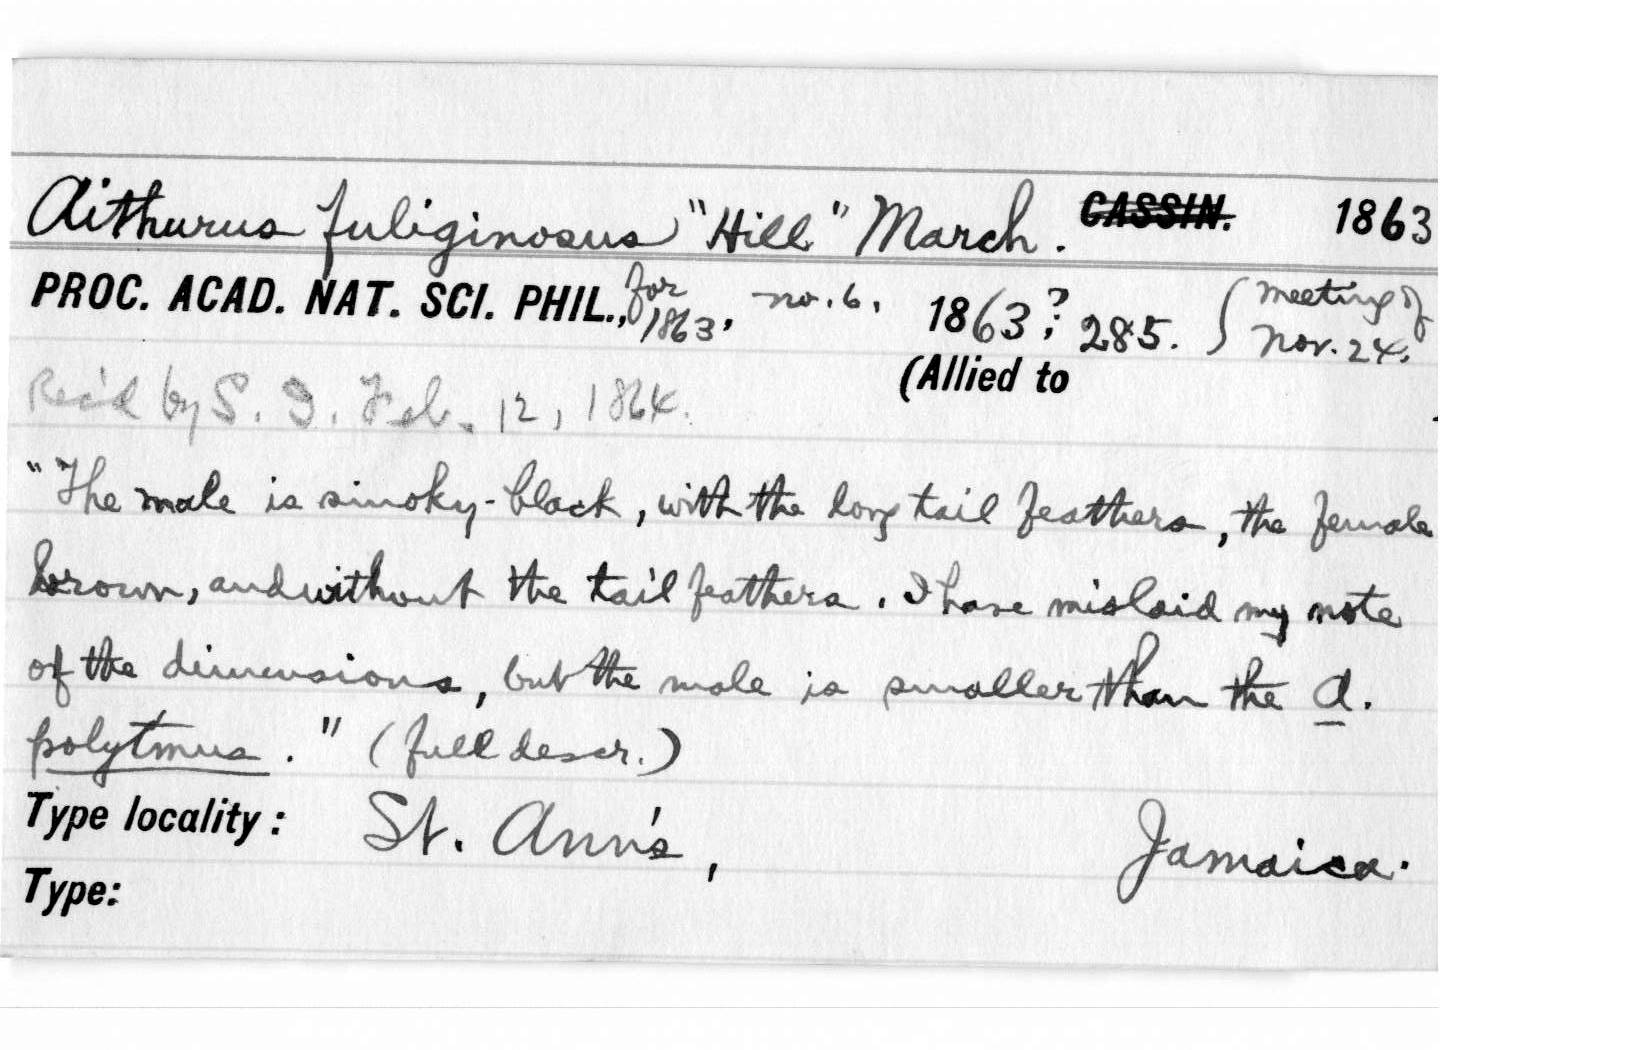 Aithurus fuliginosus "Hill" March. CASSIN. 1863
PROC. ACAD. NAT. SCI. PHIL., for 1863, no. 6, 1863?; 285. { meeting of Nov. 24.
(Allied to
Rec'd by S. I. Feb. 12, 1864.
"The male is smoky-black, with the long tail feathers, the female
brown, and without the tail feathers. I have mislaid my note
of the dimensions, but the male is smaller than the A.
polytmus." (full descr.)
Type locality: St. Ann's, Jamaica.
Type: